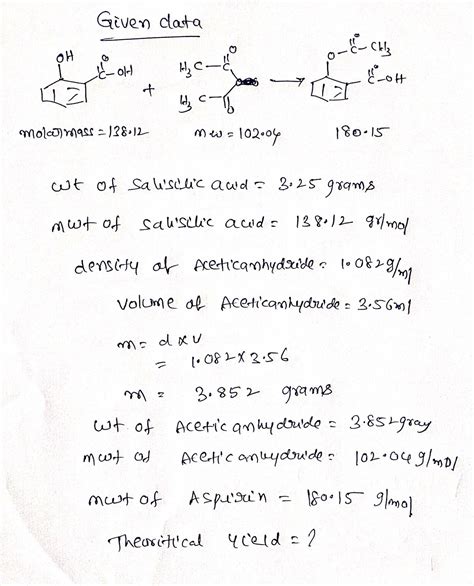 Given data
OH O
C-OH + H3C-C O
H3C-C O
→ O-C-CH3 O
C-OH O
mol(ar) mass = 138.12 mw = 102.04 180.15
wt of Salisilic acid = 3.25 grams
mwt of Salisilic acid = 138.12 gr/mol
density of Aceticanhydride = 1.082 g/ml
volume of Aceticanhydride = 3.56ml
m = d x v
= 1.082 x 3.56
m = 3.852 grams
wt of Acetic anhydride = 3.852 gray
mwt of Acetic anhydride = 102.04 g/mol
mwt of Aspirin = 180.15 g/mol
Theoritical yield = ?